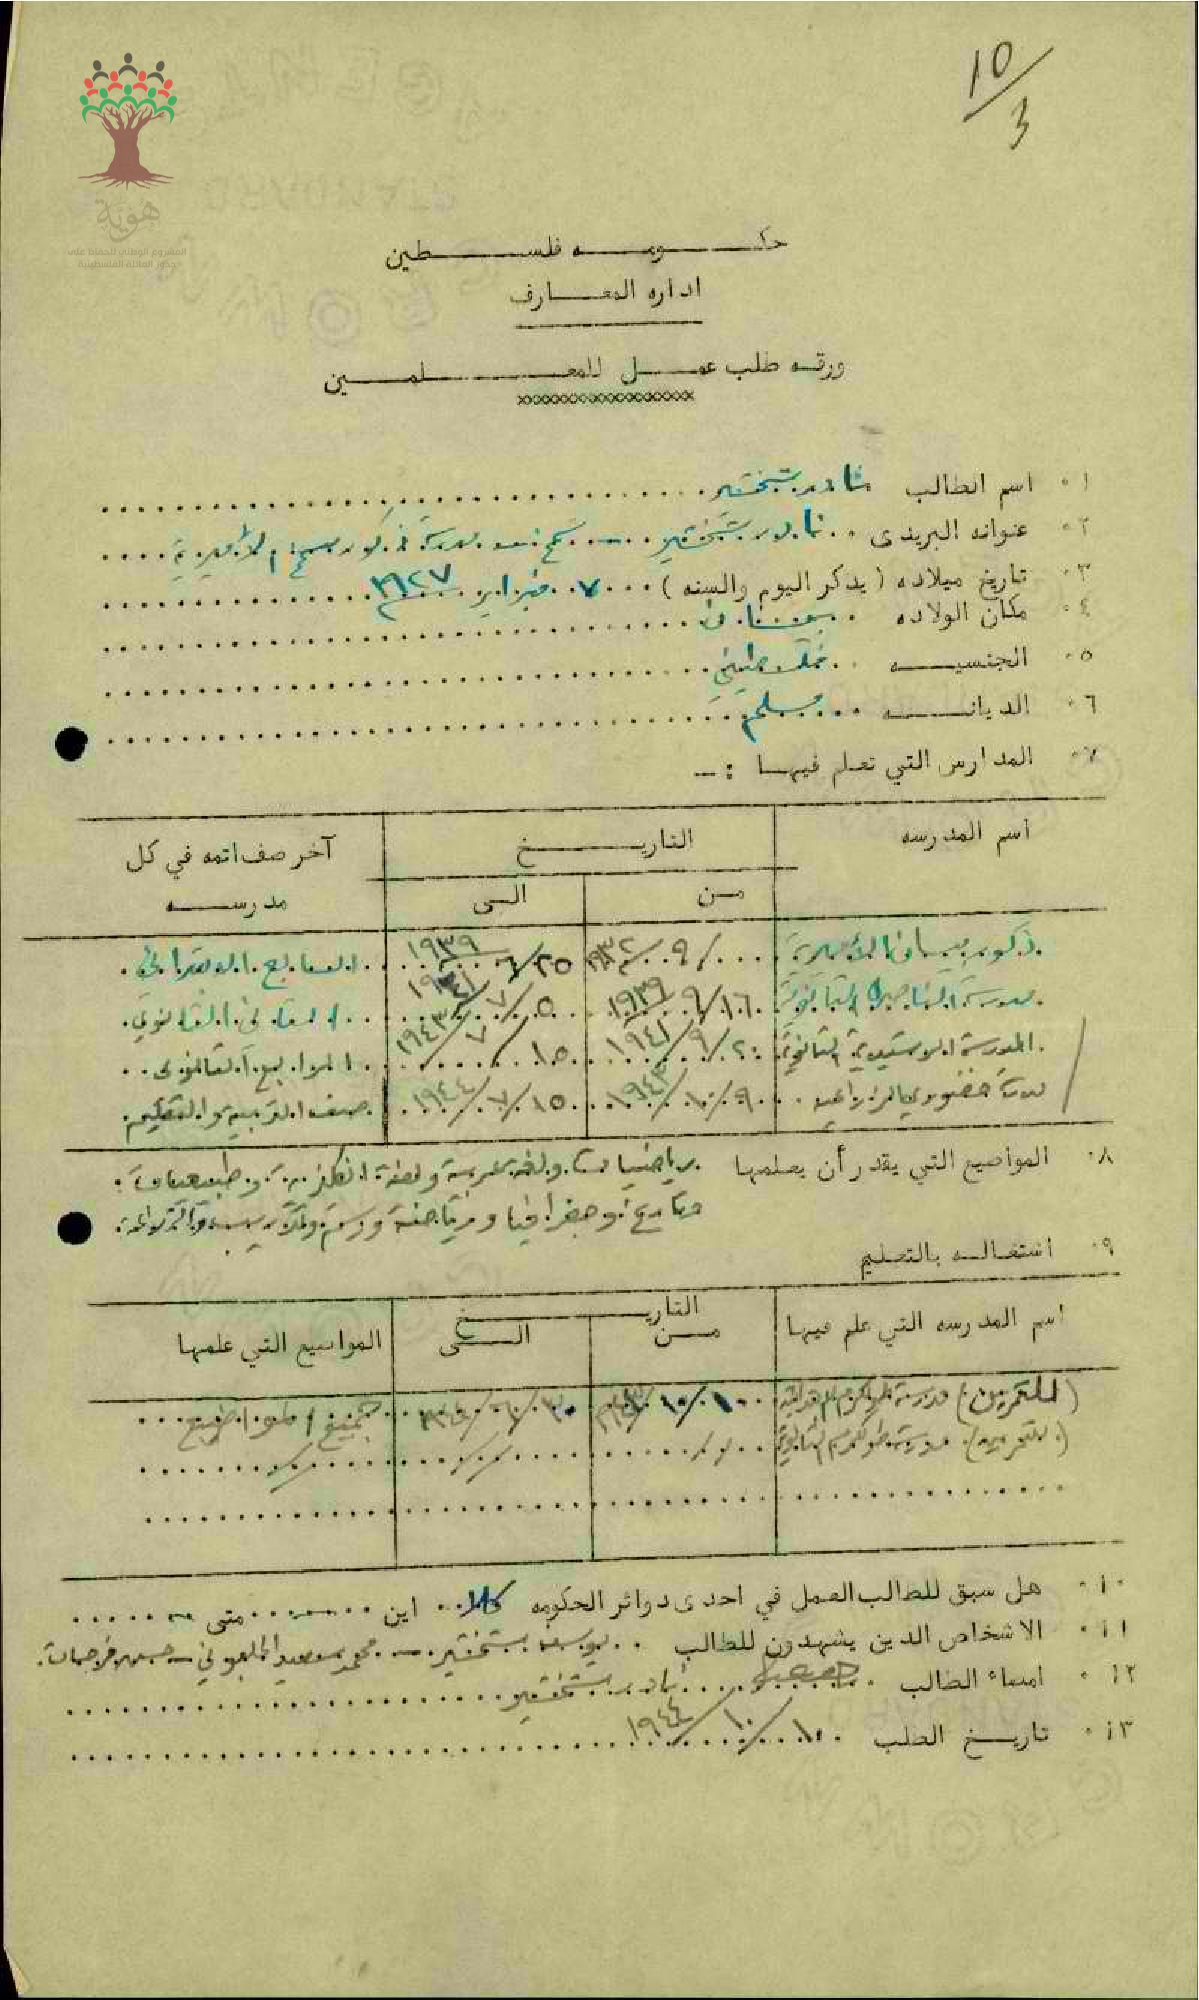 10/3
هوية
المشروع الوطني للحفاظ على
جذور العائلة الفلسطينية
حكومه فلسطين
اداره المعارف
ورقه طلب عمل للمعلمين
xxxxxxxxxxxxxxxxxx
١٠ اسم الطالب نادر بشخشير
٢٠ عنوانه البريدى نادر بشخشير - مدرسة ذكور الأميرية
٣٠ تاريخ ميلاده (يذكر اليوم والسنه) ٧ فبراير ١٩٢٧
٤٠ مكان الولاده
٥٠ الجنسيه فلسطيني
٦٠ الديانه مسلم
٧٠ المدارس التي تعلم فيها :-
اسم المدرسه التاريخ آخر صف اتمه في كل مدرسه
من الى
ذكور بيسان الأميرية ٩/١٩٣٢ ٢٥/٦/١٩٣٩ السابع الابتدائي
مدرسة الثانوية ١٦/٩/١٩٣٩ ٥/٧/١٩٤١ الثاني الثانوي
المدرسة الرشيدية الثانوية ٢٠/٩/١٩٤١ ١٥/٧/١٩٤٣ الرابع الثانوي
مدرسة خضوري الزراعيه ٩/١٠/١٩٤٣ ١٥/٧/١٩٤٤ صف التربيه والتعليم
٨٠ المواضيع التي يقدر أن يعلمها رياضيات ولغة عربية ولغة انكليزية وطبيعيات
وتاريخ وجغرافيا ورياضة ورسم
٩٠ اشتغاله بالتعليم
اسم المدرسه التي علم فيها التاريخ المواضيع التي علمها
من الى
(للتمرين) مدرسة طولكرم جميع المواضيع
(للتمرين) مدرسة طولكرم الثانوية
١٠٠ هل سبق للطالب العمل في احدى دوائر الحكومه كلا اين - متى -
١١٠ الاشخاص الذين يشهدون للطالب يوسف بشخشير - محمد سعيد
١٢٠ امضاء الطالب نادر بشخشير
١٣٠ تاريخ الطلب ١٠/١٠/١٩٤٤